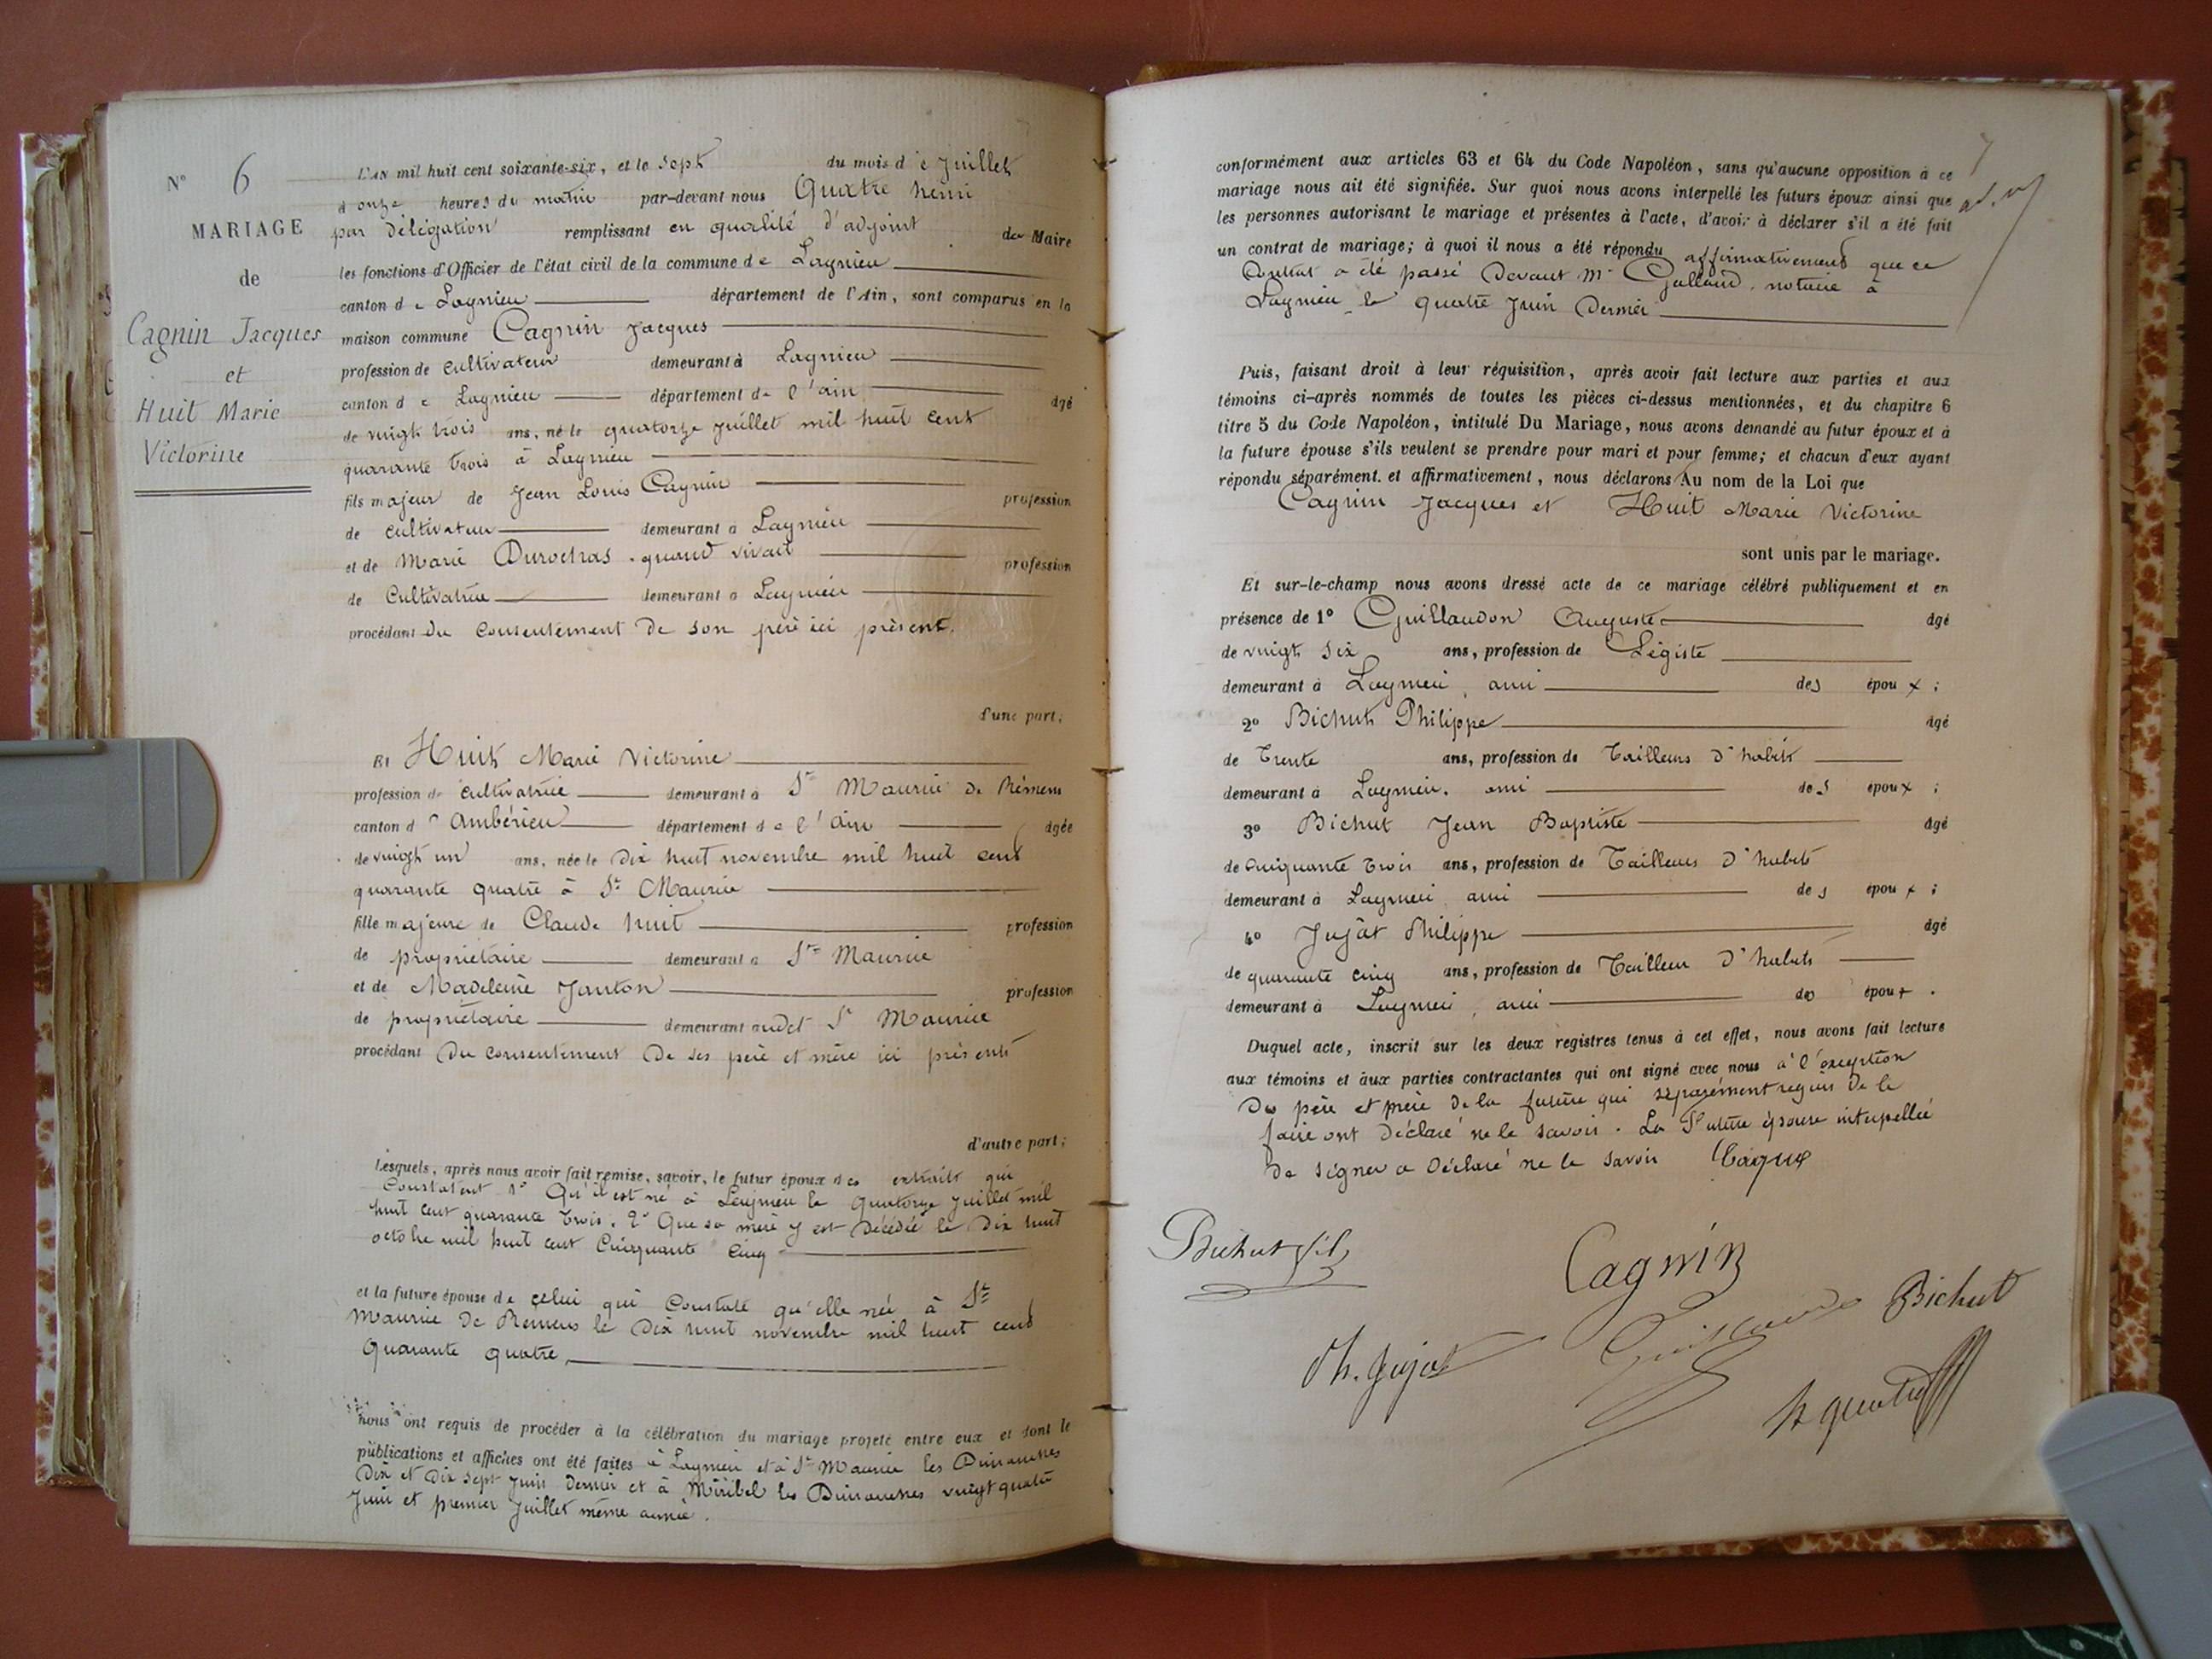 N° 6
MARIAGE
de
Cagnin Jacques
et
Huit Marie
Victorine
L'AN mil huit cent soixante-six, et le sept du mois de Juillet
à onze heures du matin par-devant nous Quatre henri
par délégation remplissant en qualité d'adjoint de Maire
les fonctions d'Officier de l'état civil de la commune de Lagnieu
canton de Lagnieu département de l'Ain, sont comparus en la
maison commune Cagnin Jacques
profession de cultivateur demeurant à Lagnieu
canton de Lagnieu département de l'ain âgé
de vingt trois ans, né le quatorze juillet mil huit cent
quarante trois à Lagnieu
fils majeur de Jean Louis Cagnin profession
de cultivateur demeurant à Lagnieu
et de Marie Durochas quand vivait profession
de Cultivatrice demeurant à Lagnieu
procédant du consentement de son père ici présent.
d'une part;
Et Huit Marie Victorine
profession de cultivatrice demeurant à St Maurice de Rémens
canton d'Ambérieu département de l'Ain âgée
de vingt un ans, née le dix huit novembre mil huit cent
quarante quatre à St Maurice
fille majeure de Claude huit profession
de propriétaire demeurant à St Maurice
et de Madeleine Janton profession
de propriétaire demeurant audet St Maurice
procédant du consentement de ses père et mère ici présents
d'autre part;
Lesquels, après nous avoir fait remise, savoir, le futur époux des extraits qui
Constatent 1° Qu'il est né à Lagnieu le quatorze juillet mil
huit cent quarante trois. 2° Que sa mère y est décédée le dix huit
octobre mil huit cent Cinquante cinq
et la future épouse de celui qui Constate qu'elle née à St
Maurice de Remens le dix huit novembre mil huit cent
Quarante quatre
nous ont requis de procéder à la célébration du mariage projeté entre eux et dont le
publications et affiches ont été faites à Lagnieu et à St Maurice les Dimanches
Dix et Dix sept Juin dernier et à Miribel les Dimanches vingt quatre
Juin et premier Juillet même année.
conformément aux articles 63 et 64 du Code Napoléon, sans qu'aucune opposition à ce
mariage nous ait été signifiée. Sur quoi nous avons interpellé les futurs époux ainsi que
les personnes autorisant le mariage et présentes à l'acte, d'avoir à déclarer s'il a été fait
un contrat de mariage; à quoi il nous a été répondu affirmativement que ce
Contrat a été passé devant Me Galland, notaire à
Lagnieu le quatre Juin dernier
Puis, faisant droit à leur réquisition, après avoir fait lecture aux parties et aux
témoins ci-après nommés de toutes les pièces ci-dessus mentionnées, et du chapitre 6
titre 5 du Code Napoléon, intitulé Du Mariage, nous avons demandé au futur époux et à
la future épouse s'ils veulent se prendre pour mari et pour femme; et chacun d'eux ayant
répondu séparément. et affirmativement, nous déclarons Au nom de la Loi que
Cagnin Jacques et Huit Marie Victorine
sont unis par le mariage.
Et sur-le-champ nous avons dressé acte de ce mariage célébré publiquement et en
présence de 1° Guillaudon Auguste âgé
de vingt six ans, profession de Légiste
demeurant à Lagnieu, ami des époux;
2° Bichut Philippe âgé
de Trente ans, profession de Tailleurs d'habits
demeurant à Lagnieu. ami des époux;
3° Bichut Jean Baptiste âgé
de cinquante trois ans, profession de Tailleurs d'habits
demeurant à Lagnieu ami des époux;
4° Jujât Philippe âgé
de quarante cinq ans, profession de Tailleur d'habits
demeurant à Lagnieu, ami des époux.
Duquel acte, inscrit sur les deux registres tenus à cet effet, nous avons fait lecture
aux témoins et aux parties contractantes qui ont signé avec nous à l'exception
Du père et mère de la future qui séparément requis de le
faire ont déclaré ne le savoir. La Future épouse interpellée
de signer a déclaré ne le savoir
Bichut fils
Cagnin
Bichut
Ph. Jujat
h quatre